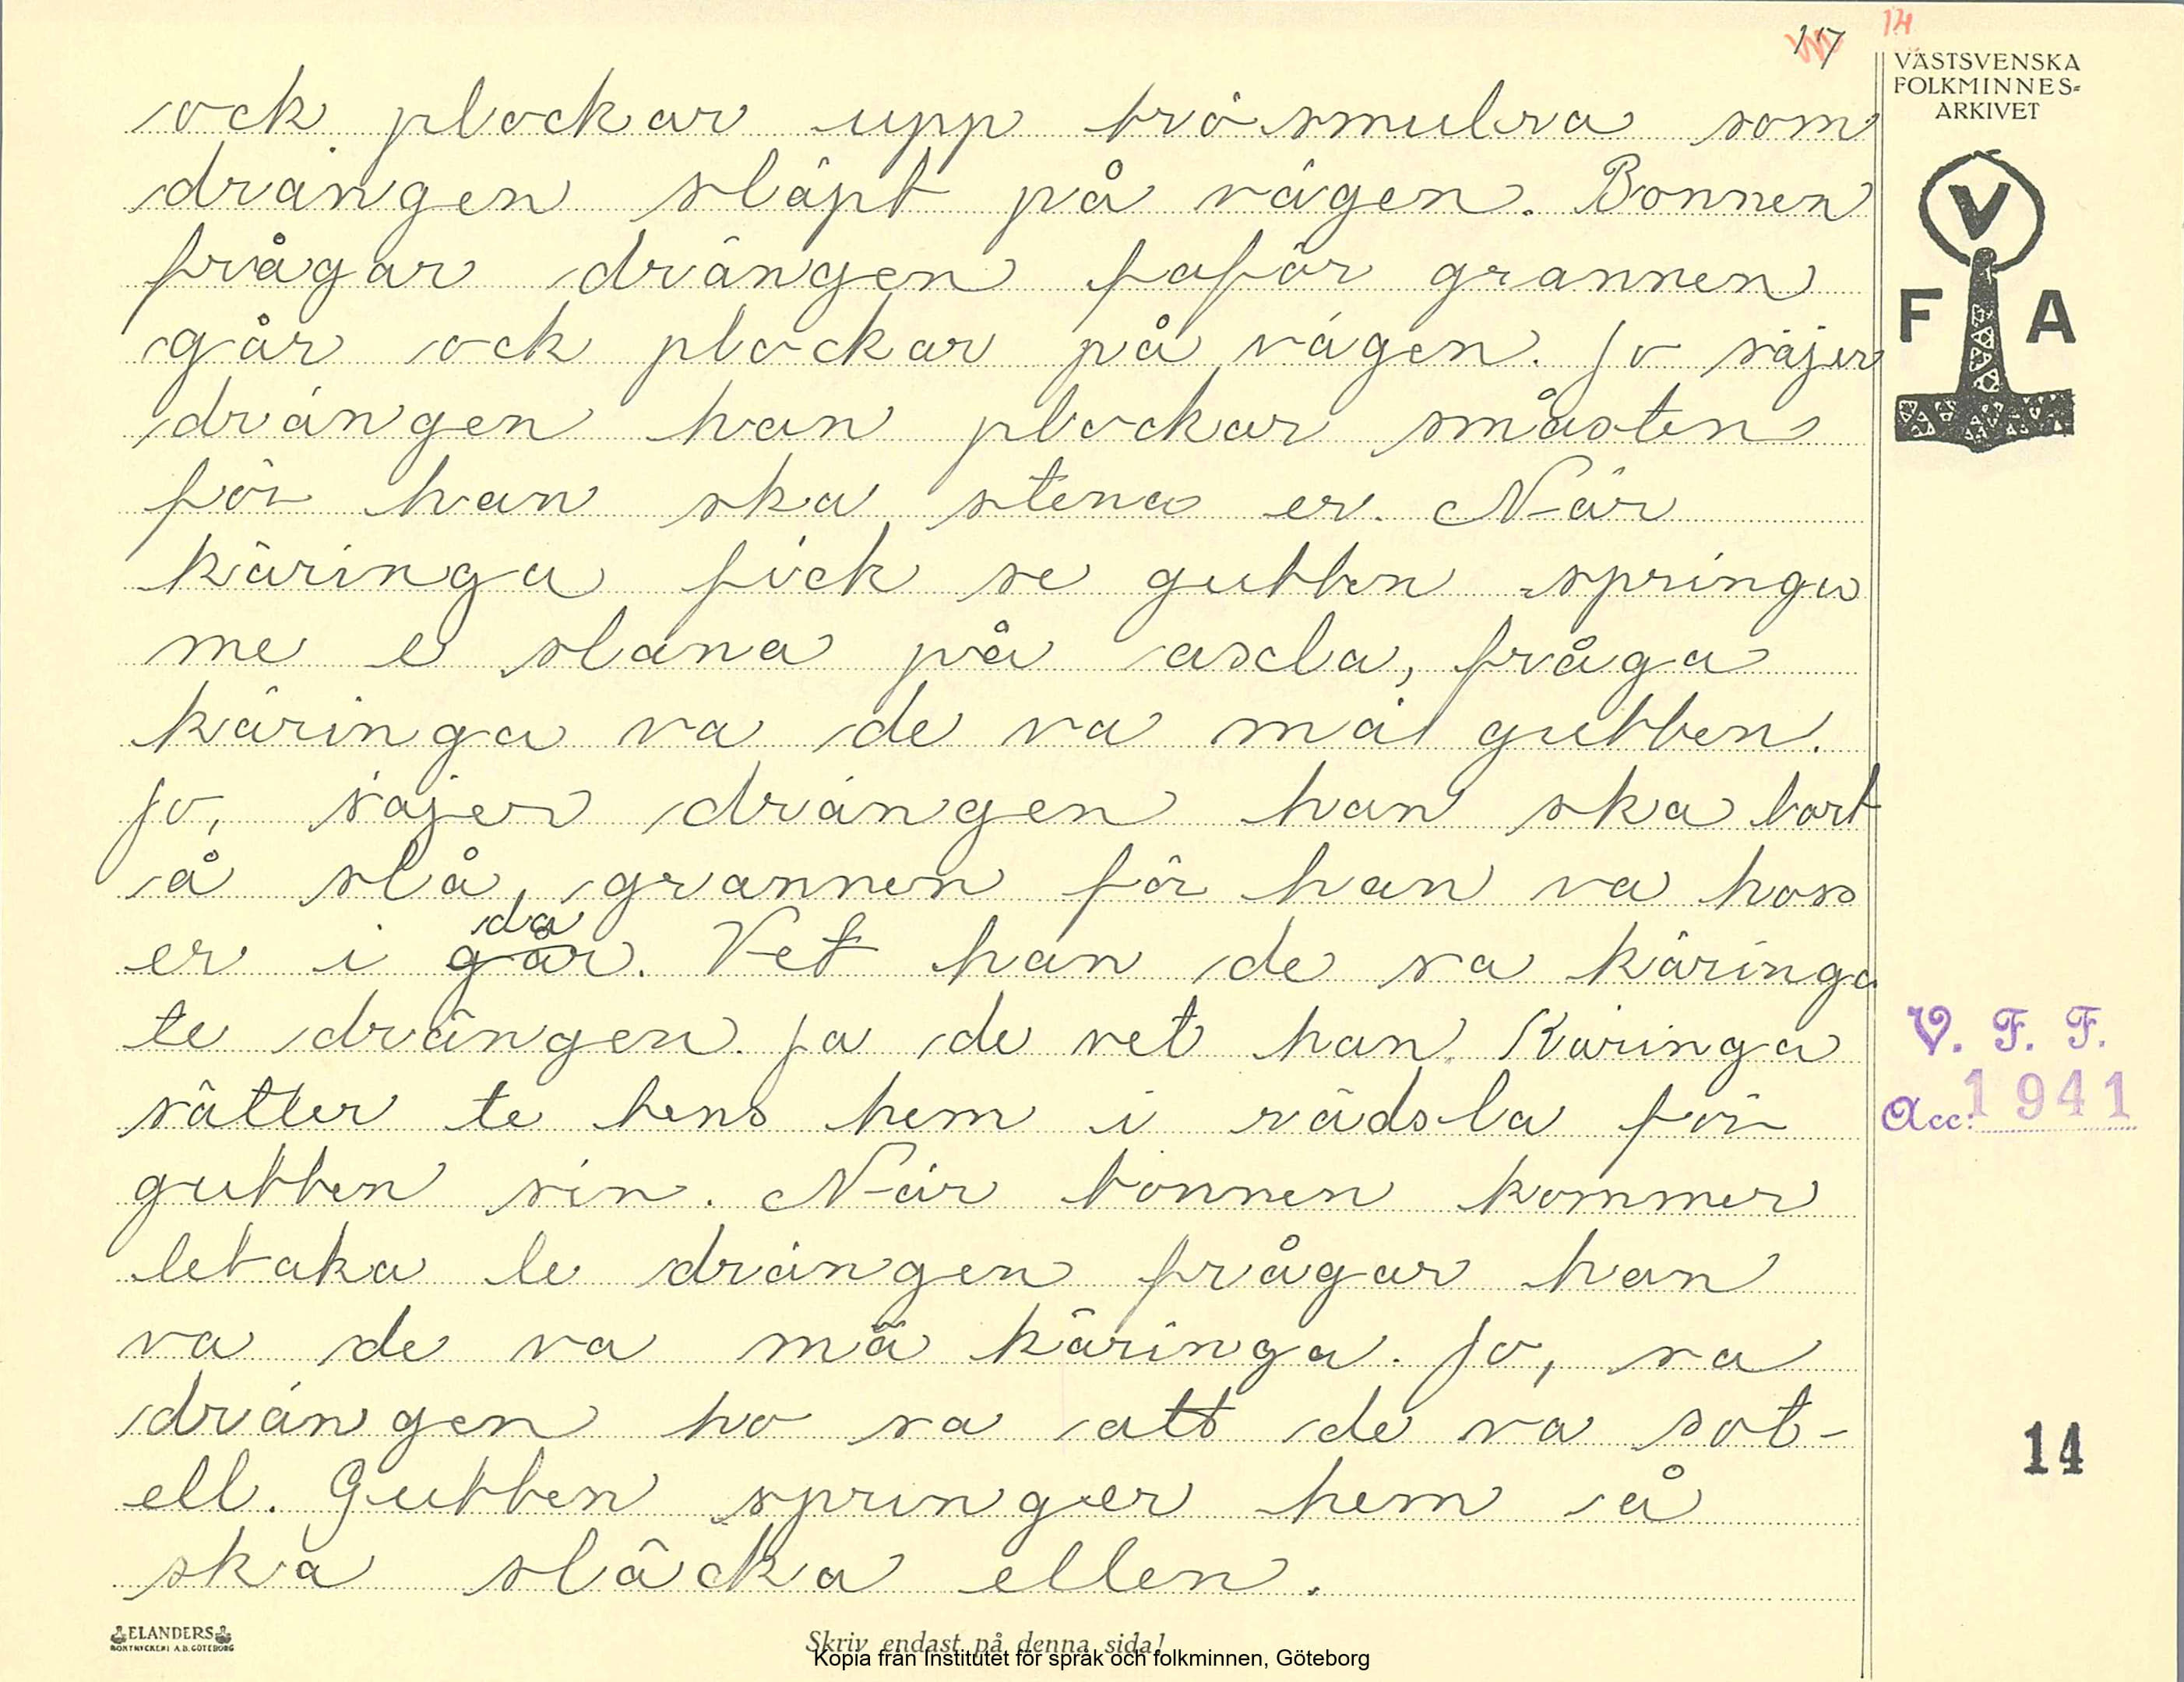 117
14
VÄSTSVENSKA
FOLKMINNES-
ARKIVET
V
F A
ock plockar upp brösmulra som
drängen släpt på vägen. Bonnen
frågar drängen faför grannen
går ock plockar på vägen. Jo säjer
drängen han plockar småsten
för han ska stena er. När
käringa fick se gubben springa
me e slana på axla, fråga
käringa va de va mä gubben.
Jo, säjer drängen han ska bort
å slå grannen för han va hos
da
er i går. Vet han de sa käringa
te drängen. Ja de vet han. Käringa
sätter te bens hem i rädsla för
gubben sin. När bonnen kommer
tebaka te drängen frågar han
va de va mä käringa. Jo, sa
drängen ho sa att de va sot-
ell. Gubben springer hem å
ska släcka ellen.
V. F. F.
Acc. 1941
14
ELANDERS
BOKTRYCKERI A.B. GÖTEBORG
Skriv endast på denna sida!
Kopia från Institutet för språk och folkminnen, Göteborg